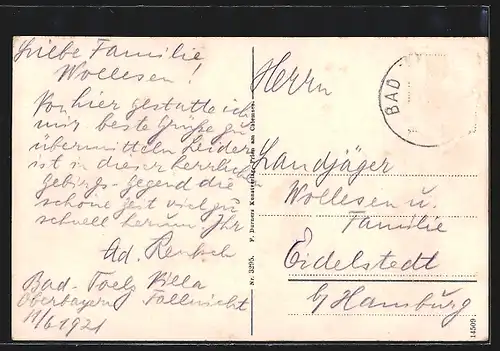 Liebe Familie
Wollesen!
Von hier gestatte ich
mir beste Grüße zu
übermitteln Leider
ist in dieser herrlichen
gebirgs-gegend die
schöne zeit viel zu
schnell herum Ihr
Ad. Rentsch
Bad-Toelz Villa
Oberbayern Fallnicht
11/6 1921
Nr. 3295. F. Dorners Kunstverlag, Prien am Chiemsee.
BAD
Herrn
Landjäger
Wollesen u.
Familie
Eidelstedt
b/Hamburg
14509